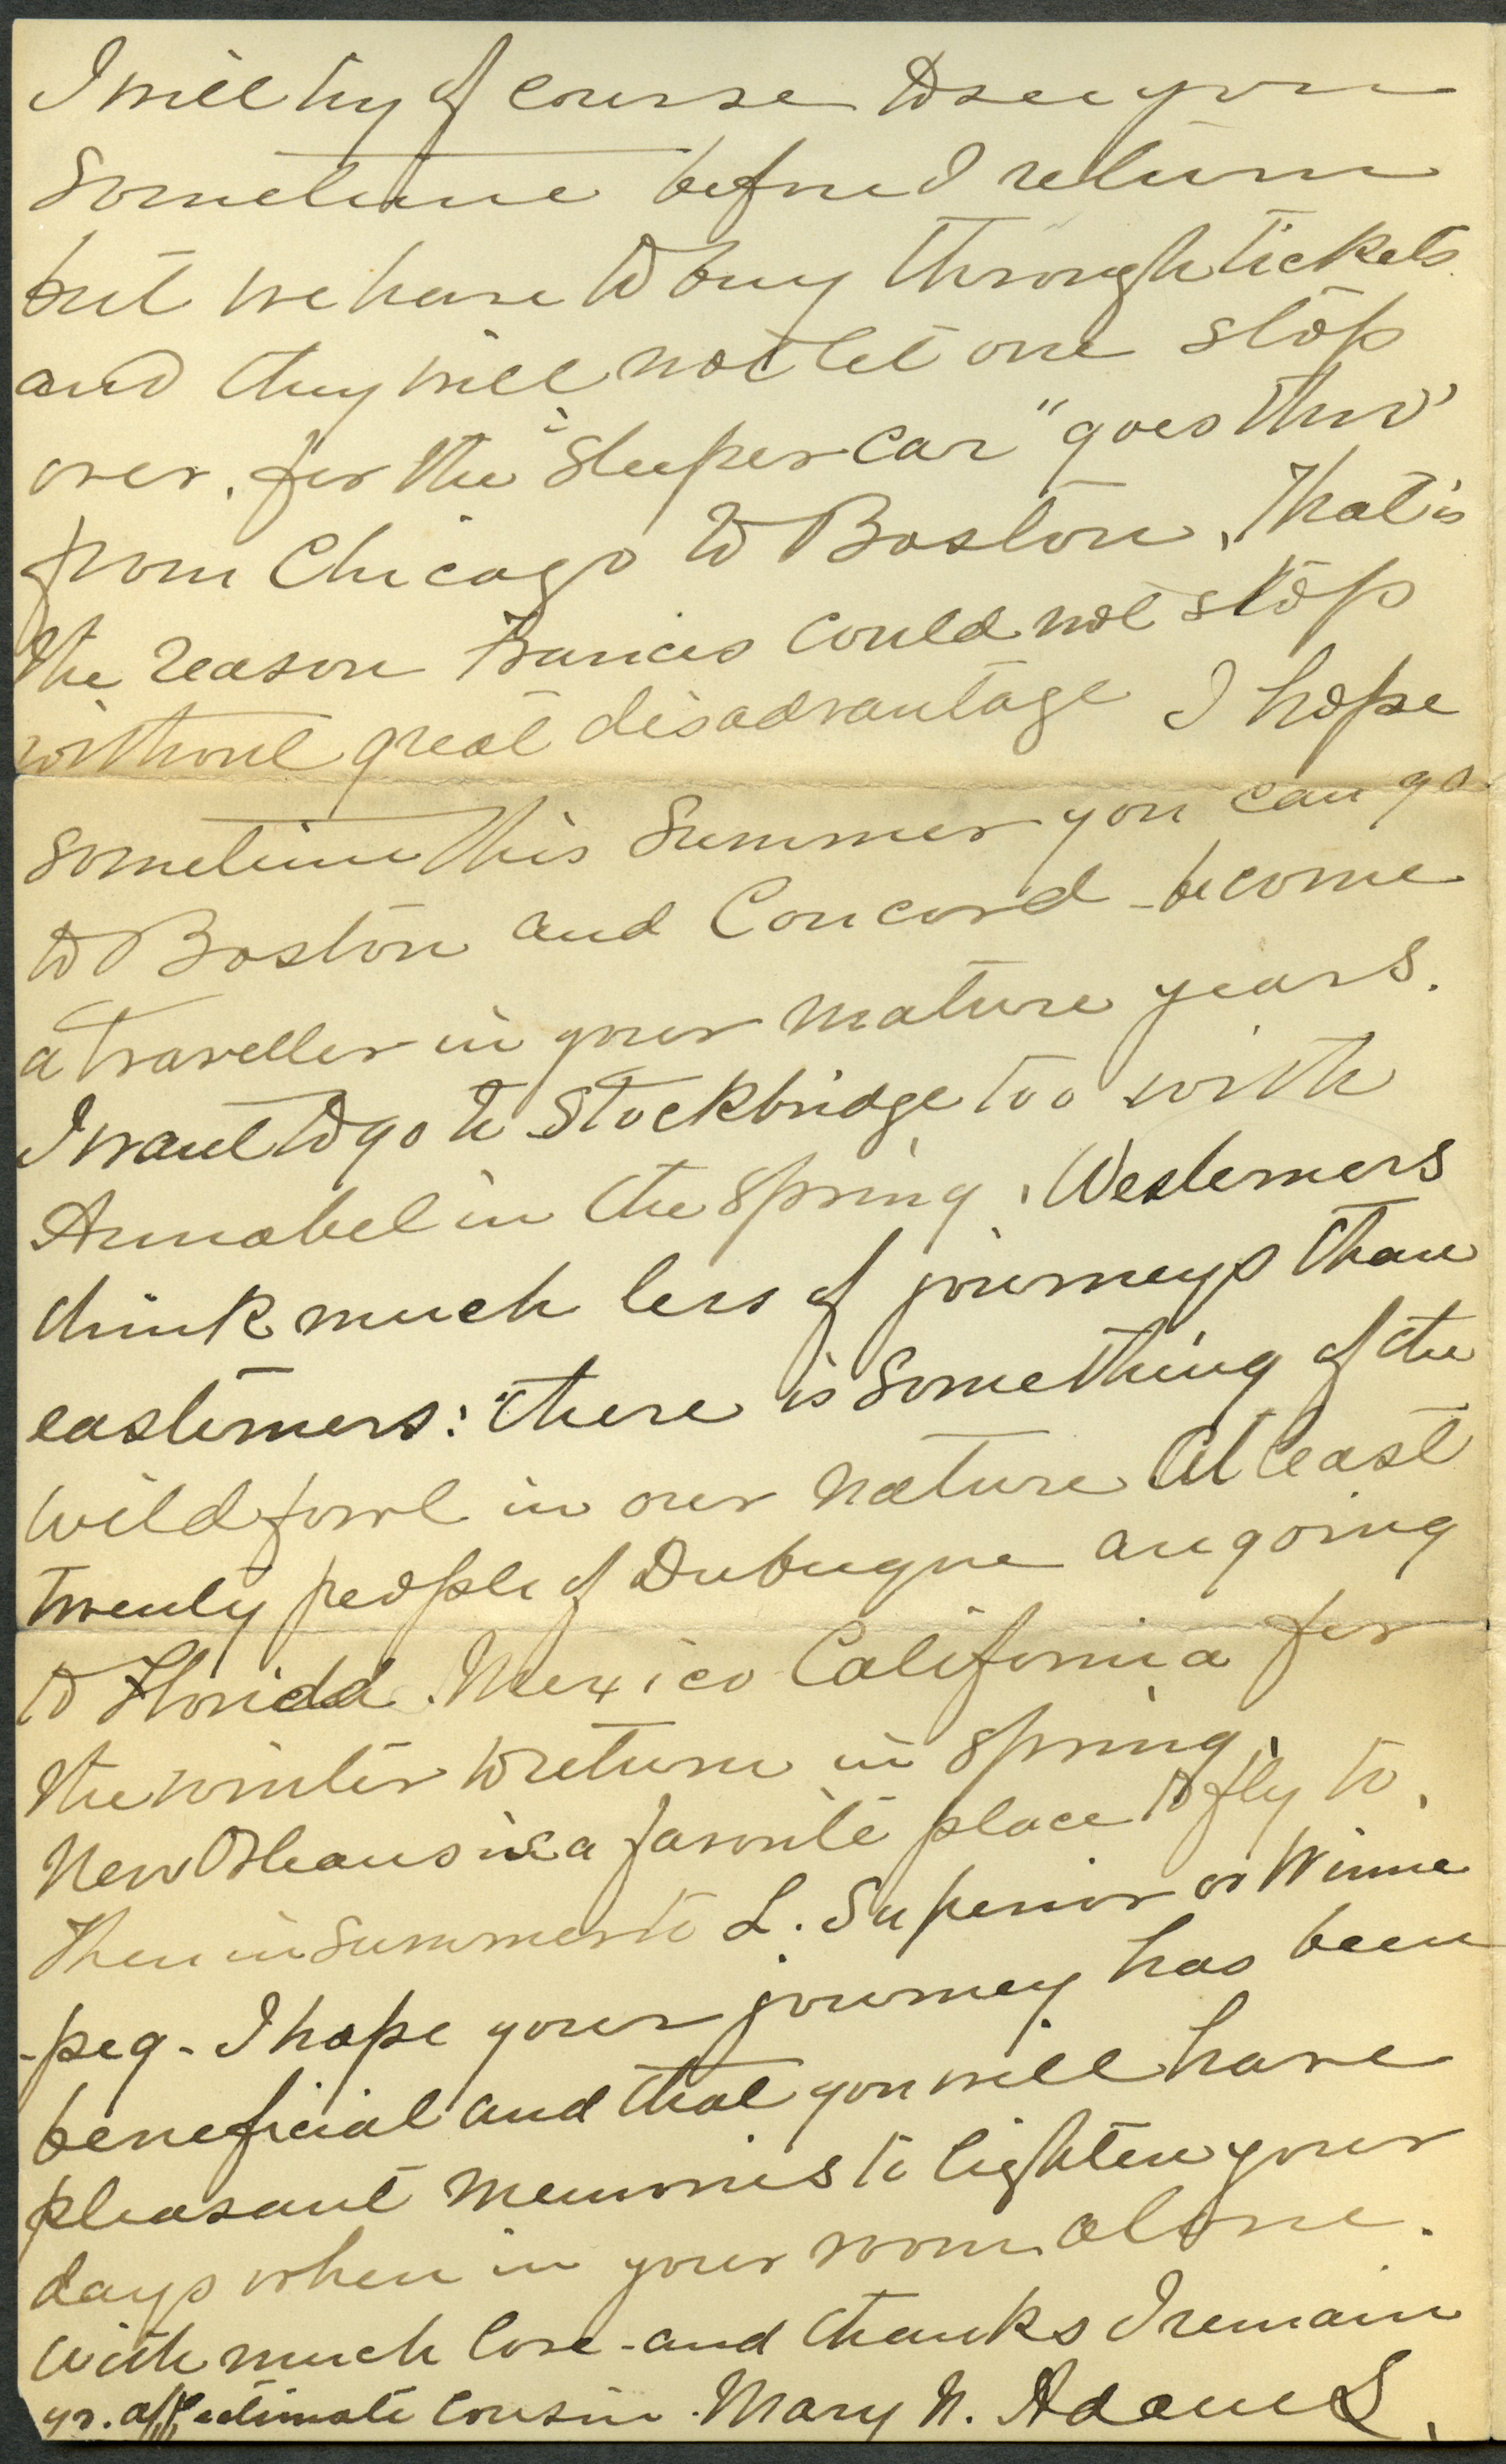 I will try of course to see you
sometime before I return
but we have to buy through tickets
and they will not let one stop
over, for the "sleeper car" goes thro'
from Chicago to Boston, that is
the reason Frances could not stop
without great disadvantage I hope
sometime this summer you can go
to Boston and Concord - become
a traveller in your mature years.
I want to go to Stockbridge too with
Annabel in the spring. Westerners
think much less of journeys than
easterners: there is something of the
wild fowl in our nature At least
twenty people of Dubuque are going
to Florida. Mexico California for
the winter to return in spring.
New Orleans is a favorite place to fly to.
Then in summer to L. Superior or Winne
-peg - I hope your journey has been
beneficial and that you will have
pleasant memories to lighten your
days when in your room alone.
With much love - and thanks I remain
yr. affectionate cousin. Mary N. Adams.